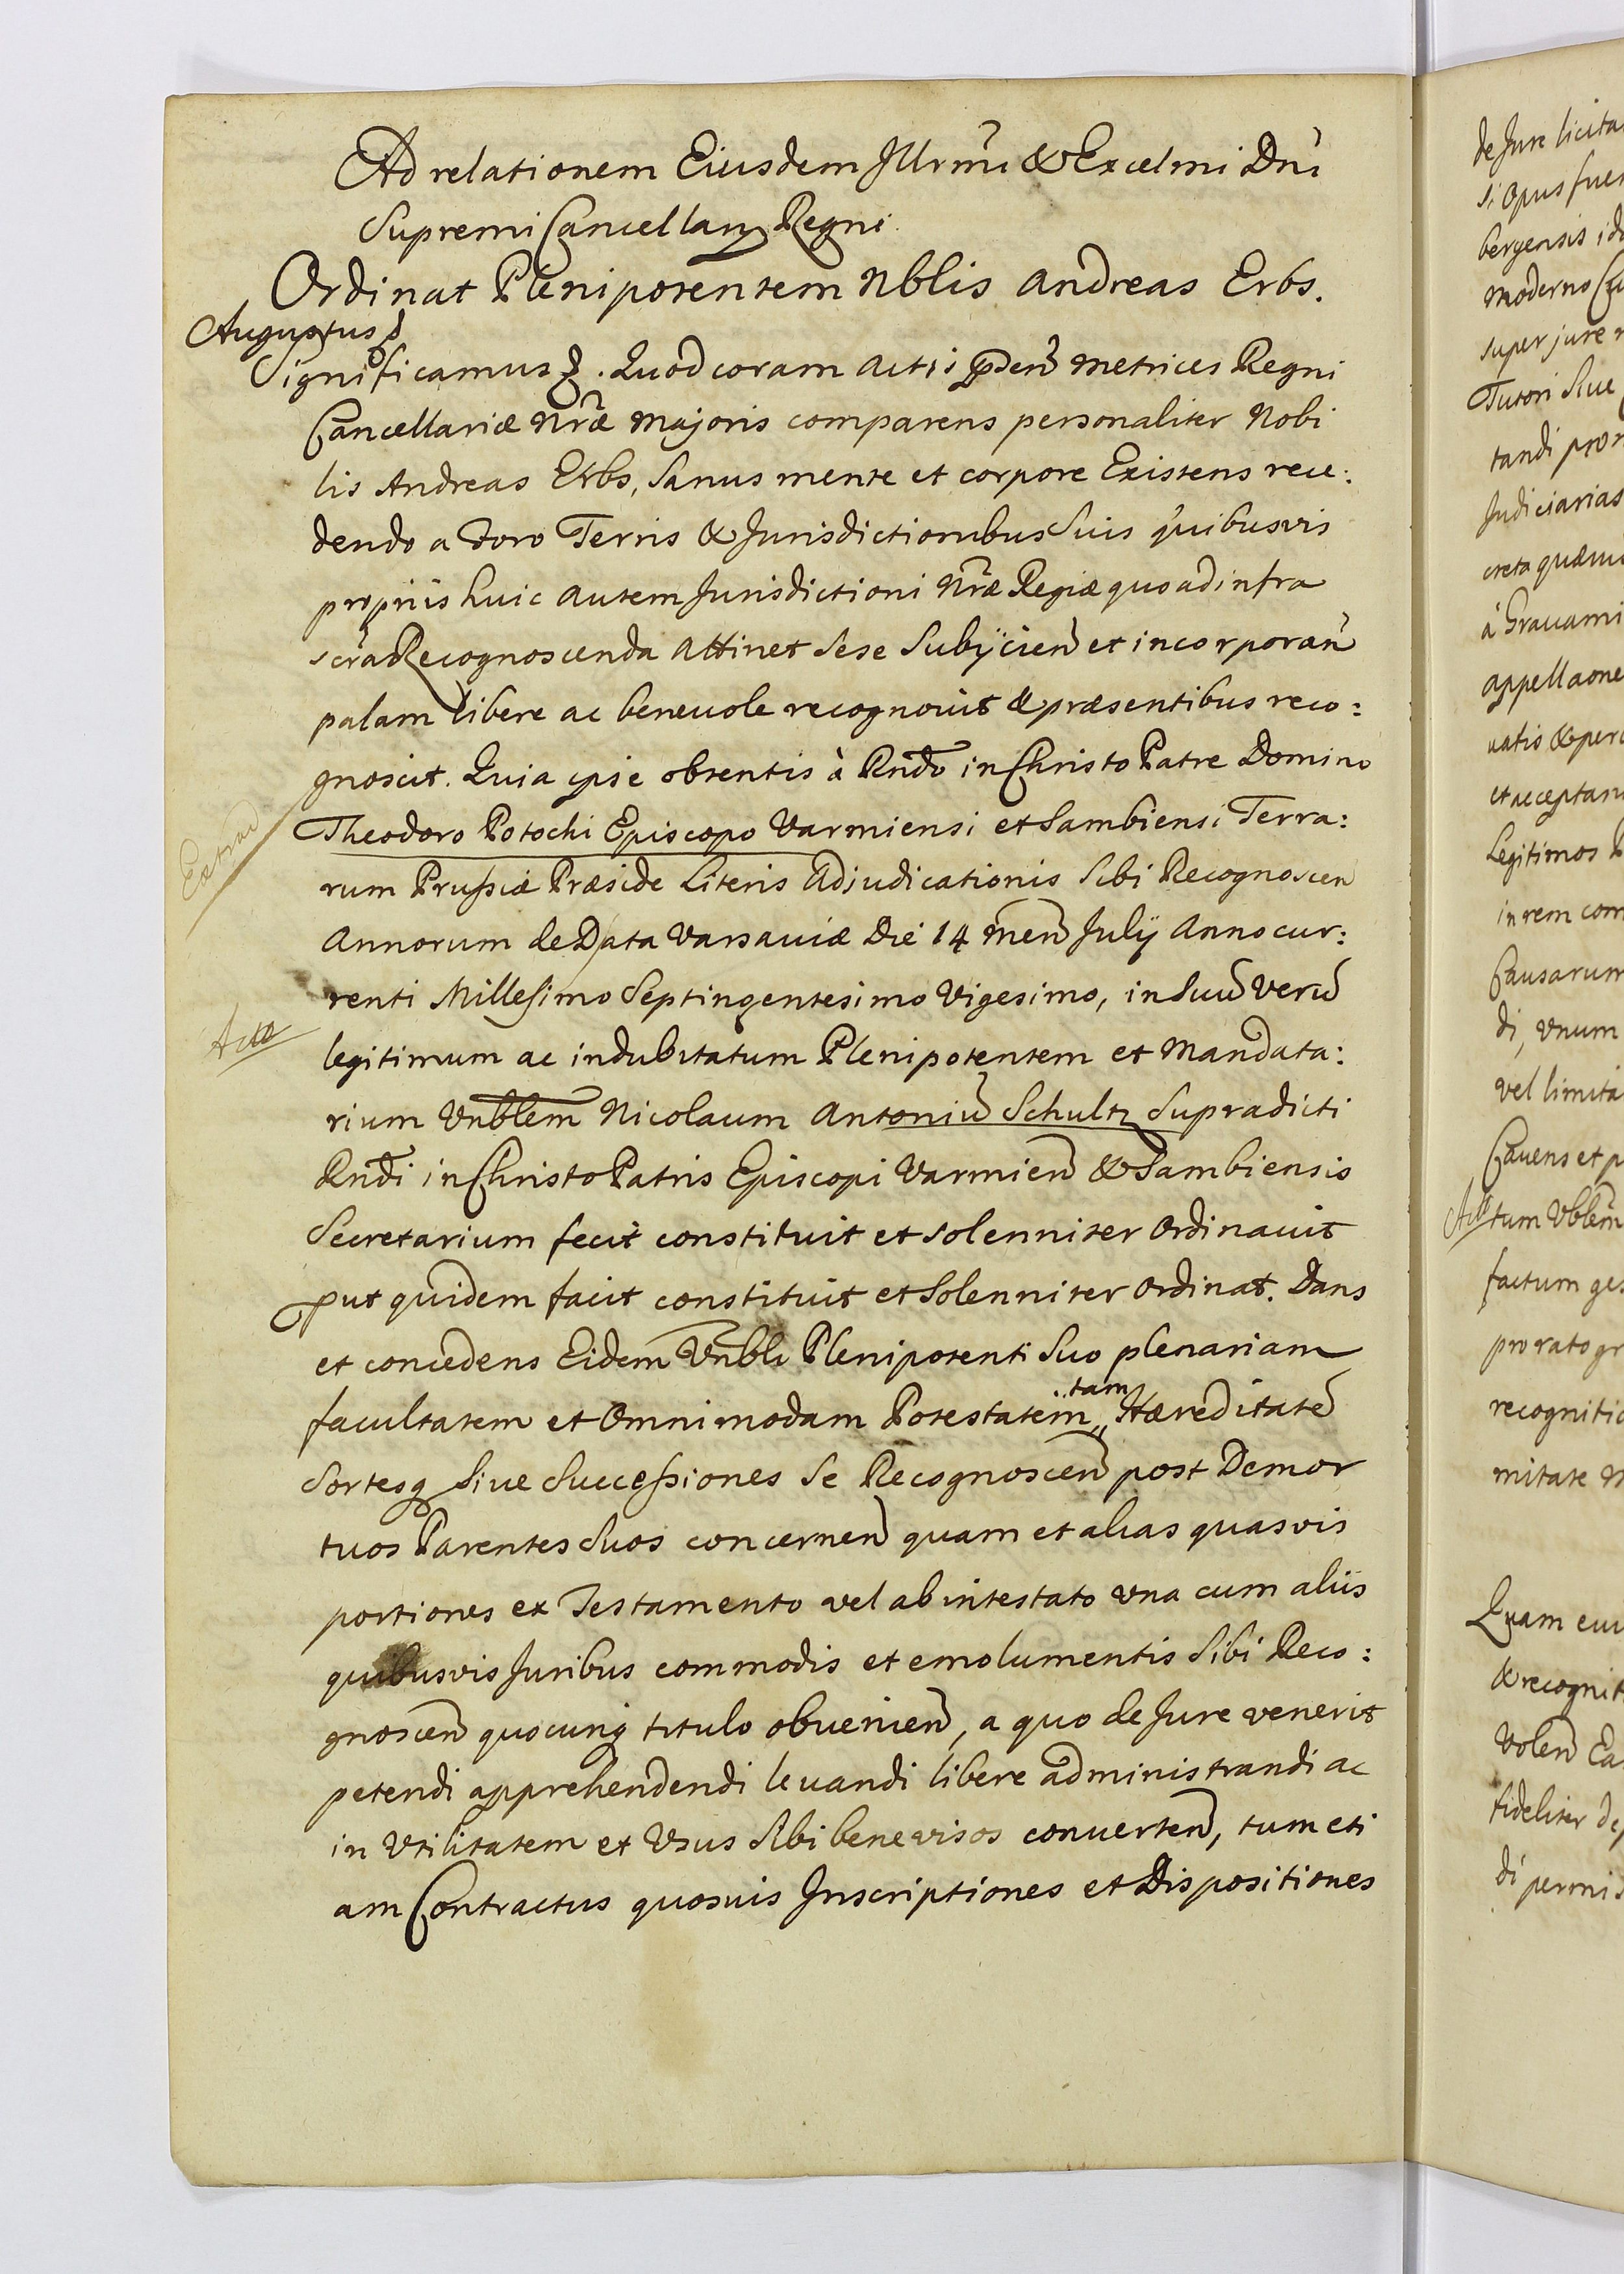 Ad relationem Eiusdem Jllrmi & Excelmi Dni
Supremi Cancellarij Regni.
Ordinat Plenipotentem Nblis Andreas Erbs.
Augustus
Significamus. Quod coram Actis pñden Metrices Regni
Cancellariæ Nræ Majoris comparens personaliter Nobi
lis Andreas Erbs, Sanus mente et corpore Existens rece:
dendo a Foro Terris & Jurisdictionibus Suis quibusvis
proprijs huic autem Jurisdictioni Nræ Regiæ quoad infra
scra Recognoscenda attinet Sese Subijcien et incorporan
palam libere ac beneuole recognovit & præsentibus reco:
gnoscit. Quia ipse obtentis à Rndo in Christo Patre Domino
Theodoro Potochi Episcopo Varmiensi et Sambiensi Terra:
Extrad
rum Prussiæ Præside Literis Adjudicationis Sibi Recognoscen
Annorum de Data Varsaviæ Die 14 Men July Anno cur:
renti Millesimo Septingentesimo Vigesimo, in Suu Veru
Actu
legitimum ac indubitatum Plenipotentem et Mandata:
rium Vnblem Nicolaum Antoniu Schultz Supradicti
Rndi in Christo Patris Episcopi Varmien & Sambiensis
Secretarium fecit constituit et Solenniter Ordinauit
put quidem facit constituit et Solenniter Ordinat. Dans
et concedens Eidem Vnbli Plenipotenti Suo plenariam
facultatem et Omnimodam Potestatem tam Hæreditate
Sortesq Siue Successiones Se Recognoscen post Demor
tuos Parentes Suos concernen quam et alias quasvis
portiones ex Testamento vel ab intestato una cum aliis
quibusvis Juribus commodis et emolumentis Sibi Reco:
gnoscen quocunq titulo obuenien, a quo de Jure venerit
petendi apprehendendi leuandi libere administrandi ac
in Vtilitatem et Vsus Sibi benevisos conuerten, tum eti
am Contractus quosuis Inscriptiones et Dispositiones
de Jure licita
si opus fue
bergensis
moderno
super jure
Tutori Siue
tandi
Judiciarias
creta
à Grauami
appellaone
uatis & per
et acceptan
Legitimos
in rem com
Causarum
di, vnum
vel limita
Cauens et
Actu
tum Vblem
factum ges
pro rato gr
recognitio
mitate
Quam
& recognit
Volen Ea
fideliter
di permis